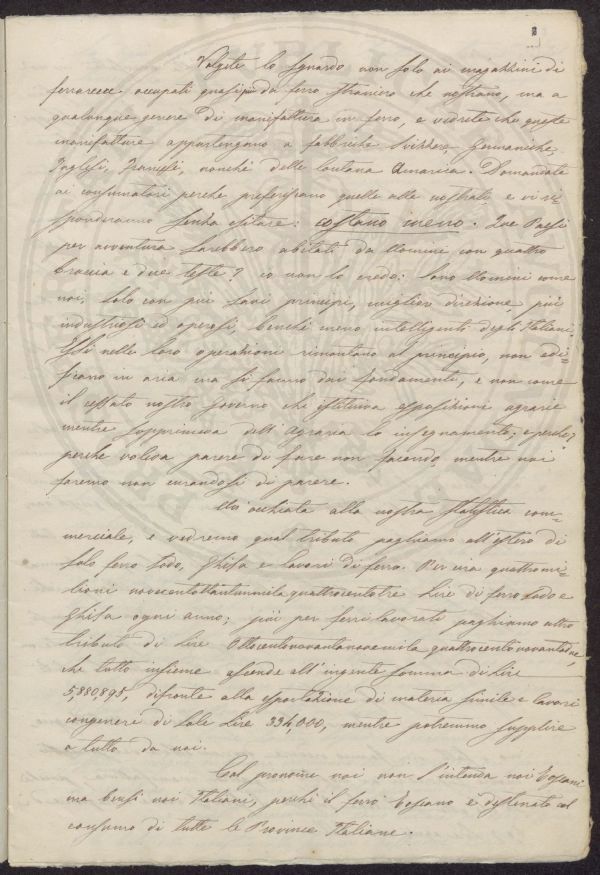 Volgete lo sguardo non solo ai magazzini di
ferrarecce occupati quasi più da ferro straniero che nostrano, ma a
qualunque genere di manifattura in ferro, e vedrete che queste
manifatture appartengono a fabbriche Svizzere, Germaniche,
Inglesi, Francesi, nonchè della lontana America. Domandate
ai consumatori perche preferiscano quelle alle nostrali e vi ri=
sponderanno senza esitare: costano meno. Que Paesi
per avventura sarebbero abitati da Uomini con quattro
braccia e due teste? io non lo credo: Sono Uomini come
noi, solo con più sani principj, migliore direzione, più
industriosi ed operosi, benchè meno intelligenti degli Italiani.
Essi nelle loro operazioni rimontano al principio, non edi=
ficano in aria ma si fanno dai fondamenti, e non come
il cessato nostro Governo che istituiva esposizioni agrarie
mentre sopprimeva dell'Agraria lo insegnamento; e perchè?
perche voleva parere di fare non facendo mentre noi
faremo non curandosi di parere.
Un'occhiata alla nostra statistica com=
merciale, e vedremo qual tributo paghiamo all'estero di
solo ferro sodo, ghisa e lavori di ferro. Per ora quattromi=
lioni novecentottantunmila quattrocentotre Lire di ferro sodo e
ghisa ogni anno; più per ferri lavorati paghiamo altro
tributo di Lire Ottocentonovantanovemila quattrocentonovantadue,
che tutto insieme ascende all'ingente somma di Lire
5,880,895, difronte alla esportazione di materia simile e lavori
congeneri di sole Lire 334,000, mentre potremmo supplire
a tutto da noi.
Col pronome noi non s'intenda noi Toscani
ma bensì noi Italiani, perchè il ferro Toscano è destinato al
consumo di tutte le Province Italiane.